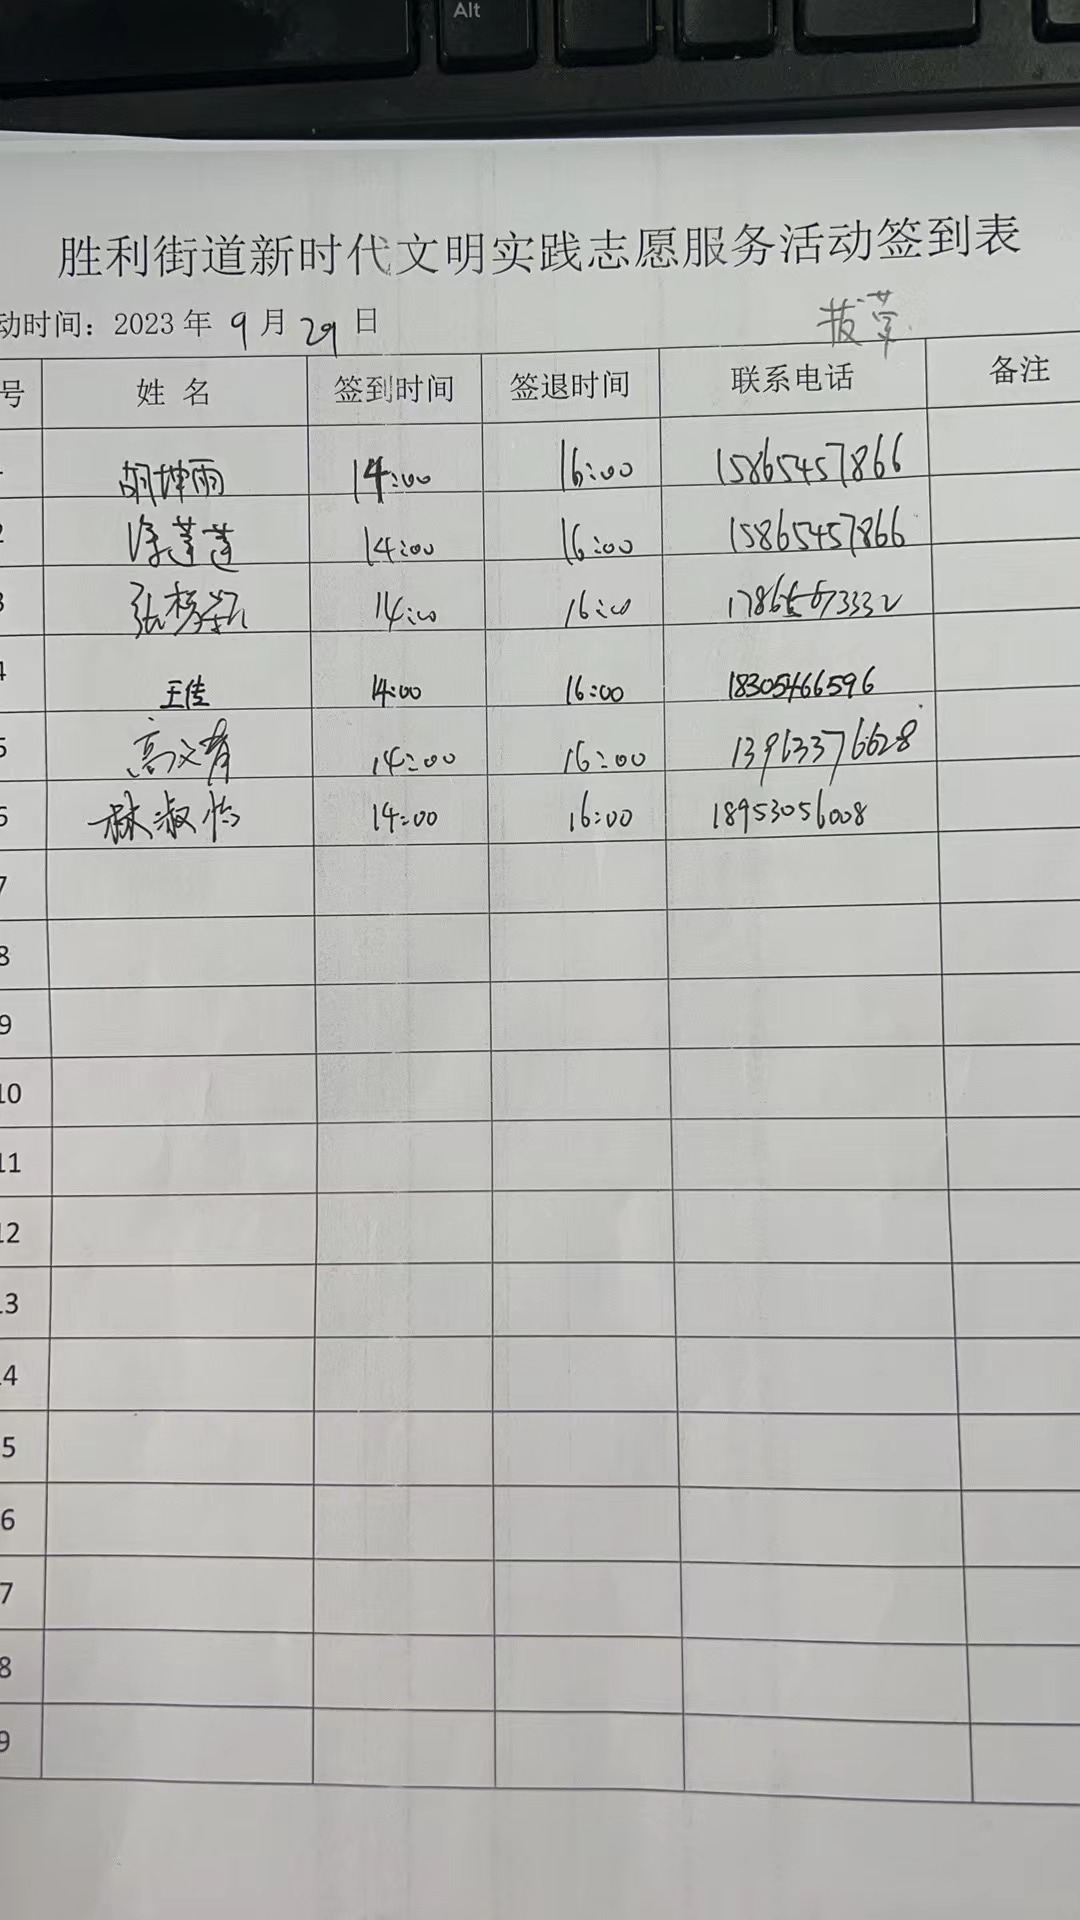 Alt
胜利街道新时代文明实践志愿服务活动签到表
动时间：2023 年 9 月 29 日 拔草
号 姓 名 签到时间 签退时间 联系电话 备注
1 胡坤雨 14:00 16:00 15865457866
2 徐莲莲 14:00 16:00 15865457866
3 张 14:00 16:00
4 王佳 14:00 16:00 18305466596
5 高文青 14:00 16:00 13963376628
6 林淑怡 14:00 16:00 18953056008
7
8
9
10
11
12
13
14
5
6
7
8
9